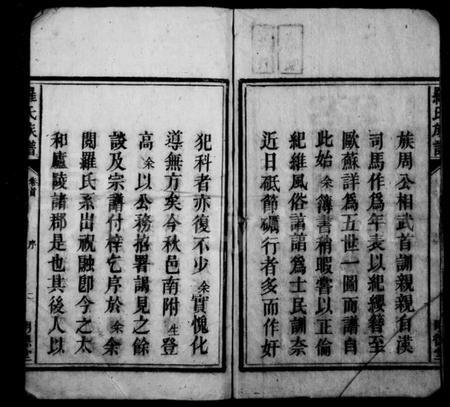 族周公相武首訓親親自漢
司馬作為年表以紀纓簪至
歐蘇詳為五世一圖而譜自
此始余簿書稍暇嘗以正倫
紀維風俗諄諄為士民訓奈
近日砥節礪行者多而作奸
犯科者亦復不少余實愧化
導無方矣今秋邑南附生登
高余以公務招署講見之餘
談及宗譜付梓乞序於余余
閱羅氏系出祝融即今之太
和廬陵諸郡是也其後人以
羅氏族譜
卷首
序